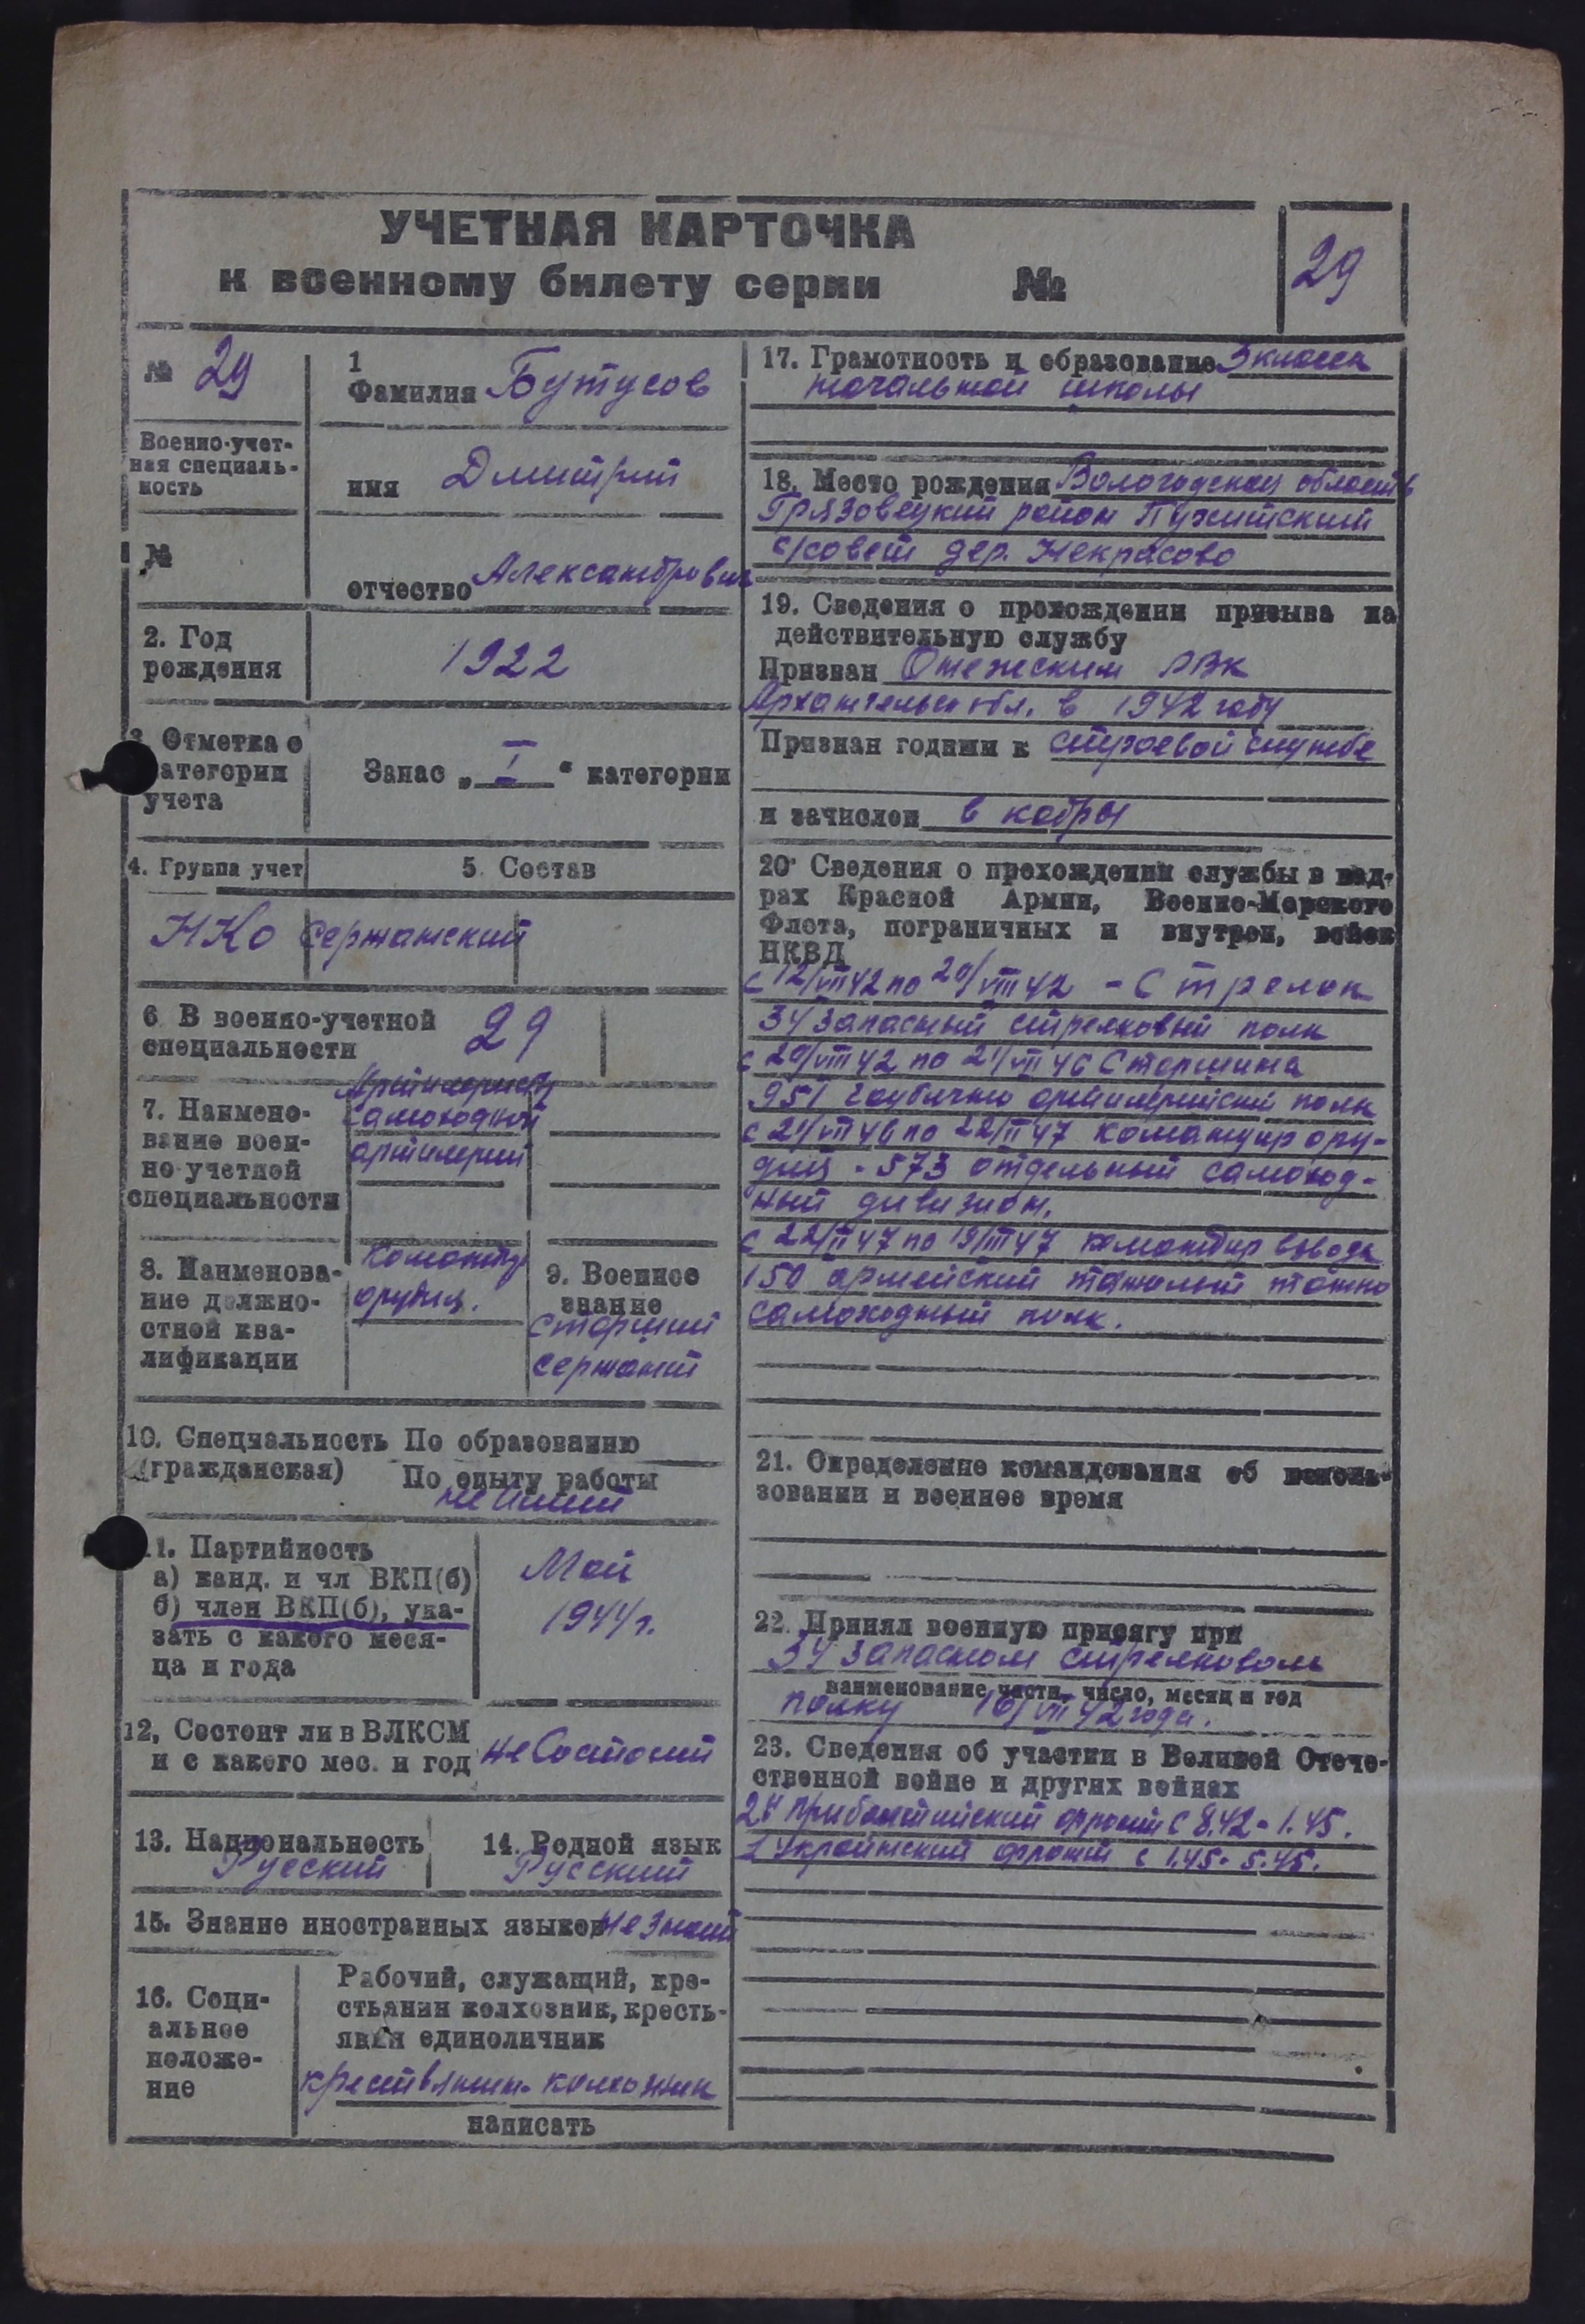 УЧЕТНАЯ КАРТОЧКА
к военному билету серии №
29
№ 29
Военно-учет-
ная специаль-
ность
№
1
Фамилия Бутусов
имя Дмитрий
отчество Александрович
2. Год
рождения
1922
3. Отметка о
категории
учета
Запас „ I “ категории
4. Группа учет
5. Состав
НКО сержанский
6 В военно-учетной
специальности
29
7. Наимено-
вание воен-
но-учетной
специальности
самоходной
артилерии
8. Наименова-
ние должно-
стной ква-
лификации
орудия.
9. Военное
звание
Старший
сержант
10. Специальность По образованию
(гражданская) По опыту работы
не имеет
11. Партийность
а) канд. и чл ВКП(б)
б) член ВКП(б), ука-
зать с какого меся-
ца и года
Май
1944 г.
12, Состоит ли в ВЛКСМ
и с какого мес. и год
не Состоит
13. Национальность
Русский
14. Родной язык
Русский
15. Знание иностранных языков не знает
16. Соци-
альное
положе-
ние
Рабочий, служащий, кре-
стьянин колхозник, кресть-
янин единоличник
крестьянин-колхозник
написать
17. Грамотность и образование 3 класса
начальной школы
18. Место рождения Вологодская область
Грязовецкий район
с/совет дер. Некрасово
19. Сведения о прохождении призыва на
действительную службу
Призван Онежским РВК
Архангельс обл. в 1942 году
Признан годным к строевой службе
и зачислен в кадры
20 Сведения о прохождении службы в кад-
рах Красной Армии, Военно-Морского
Флота, пограничных и внутрен, войск
НКВД
с 12/VII 42 по 20/VIII 42 - Стрелок
34 запасный стрелковый полк
с 20/VIII 42 по 21/VII 46 Старшина
951 гаубично артилерийский полк
с 21/VII 46 по 22/II 47 командир ору-
дия - 573 отдельный самоход-
ный дивизион.
с 22/II 47 по 19/III 47 командир взвода
150 армейский тяжолый танко
самоходный полк.
21. Определение командования об исполь-
зовании и военное время
22. Принял военную присягу при
34 запасном стрелковом
наименование части, число, месяц и год
полку 16/VII 42 года.
23. Сведения об участии в Великой Отече-
ственной войне и других войнах
2й прибалтийский фронт с 8.42 - 1.45.
1 Украинский фронт с 1.45 - 5.45.